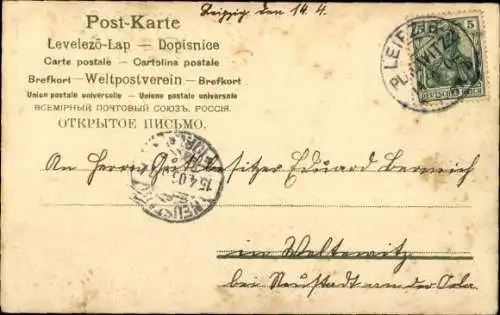 Leipzig den 14. 4.
Post-Karte
Levelező-Lap — Dopisnice
Carte postale — Cartolina postale
Brefkort — Weltpostverein — Brefkort
Union postale universelle — Unione postale universale
ВСЕМІРНЫЙ ПОЧТОВЫЙ СОЮЗЪ. РОССІЯ.
ОТКРЫТОЕ ПИСЬМО.
5
DEUTSCHES REICH
LEIPZIG
PLAGWITZ
15.4.05
NEUSTADT
An Herrn Gutsbesitzer Eduard Bernich
in Weltewitz
bei Neustadt an der Orla